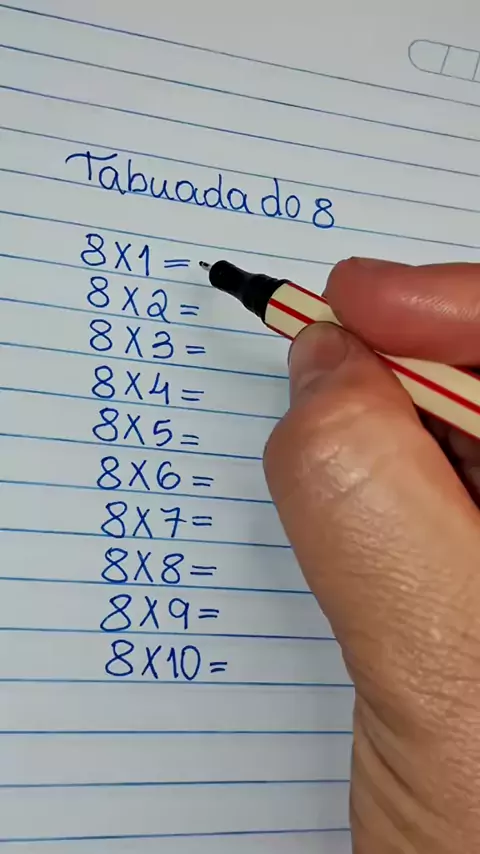 Tabuada do 8
8X1=
8X2=
8X3=
8X4=
8X5=
8X6=
8X7=
8X8=
8X9=
8X10=